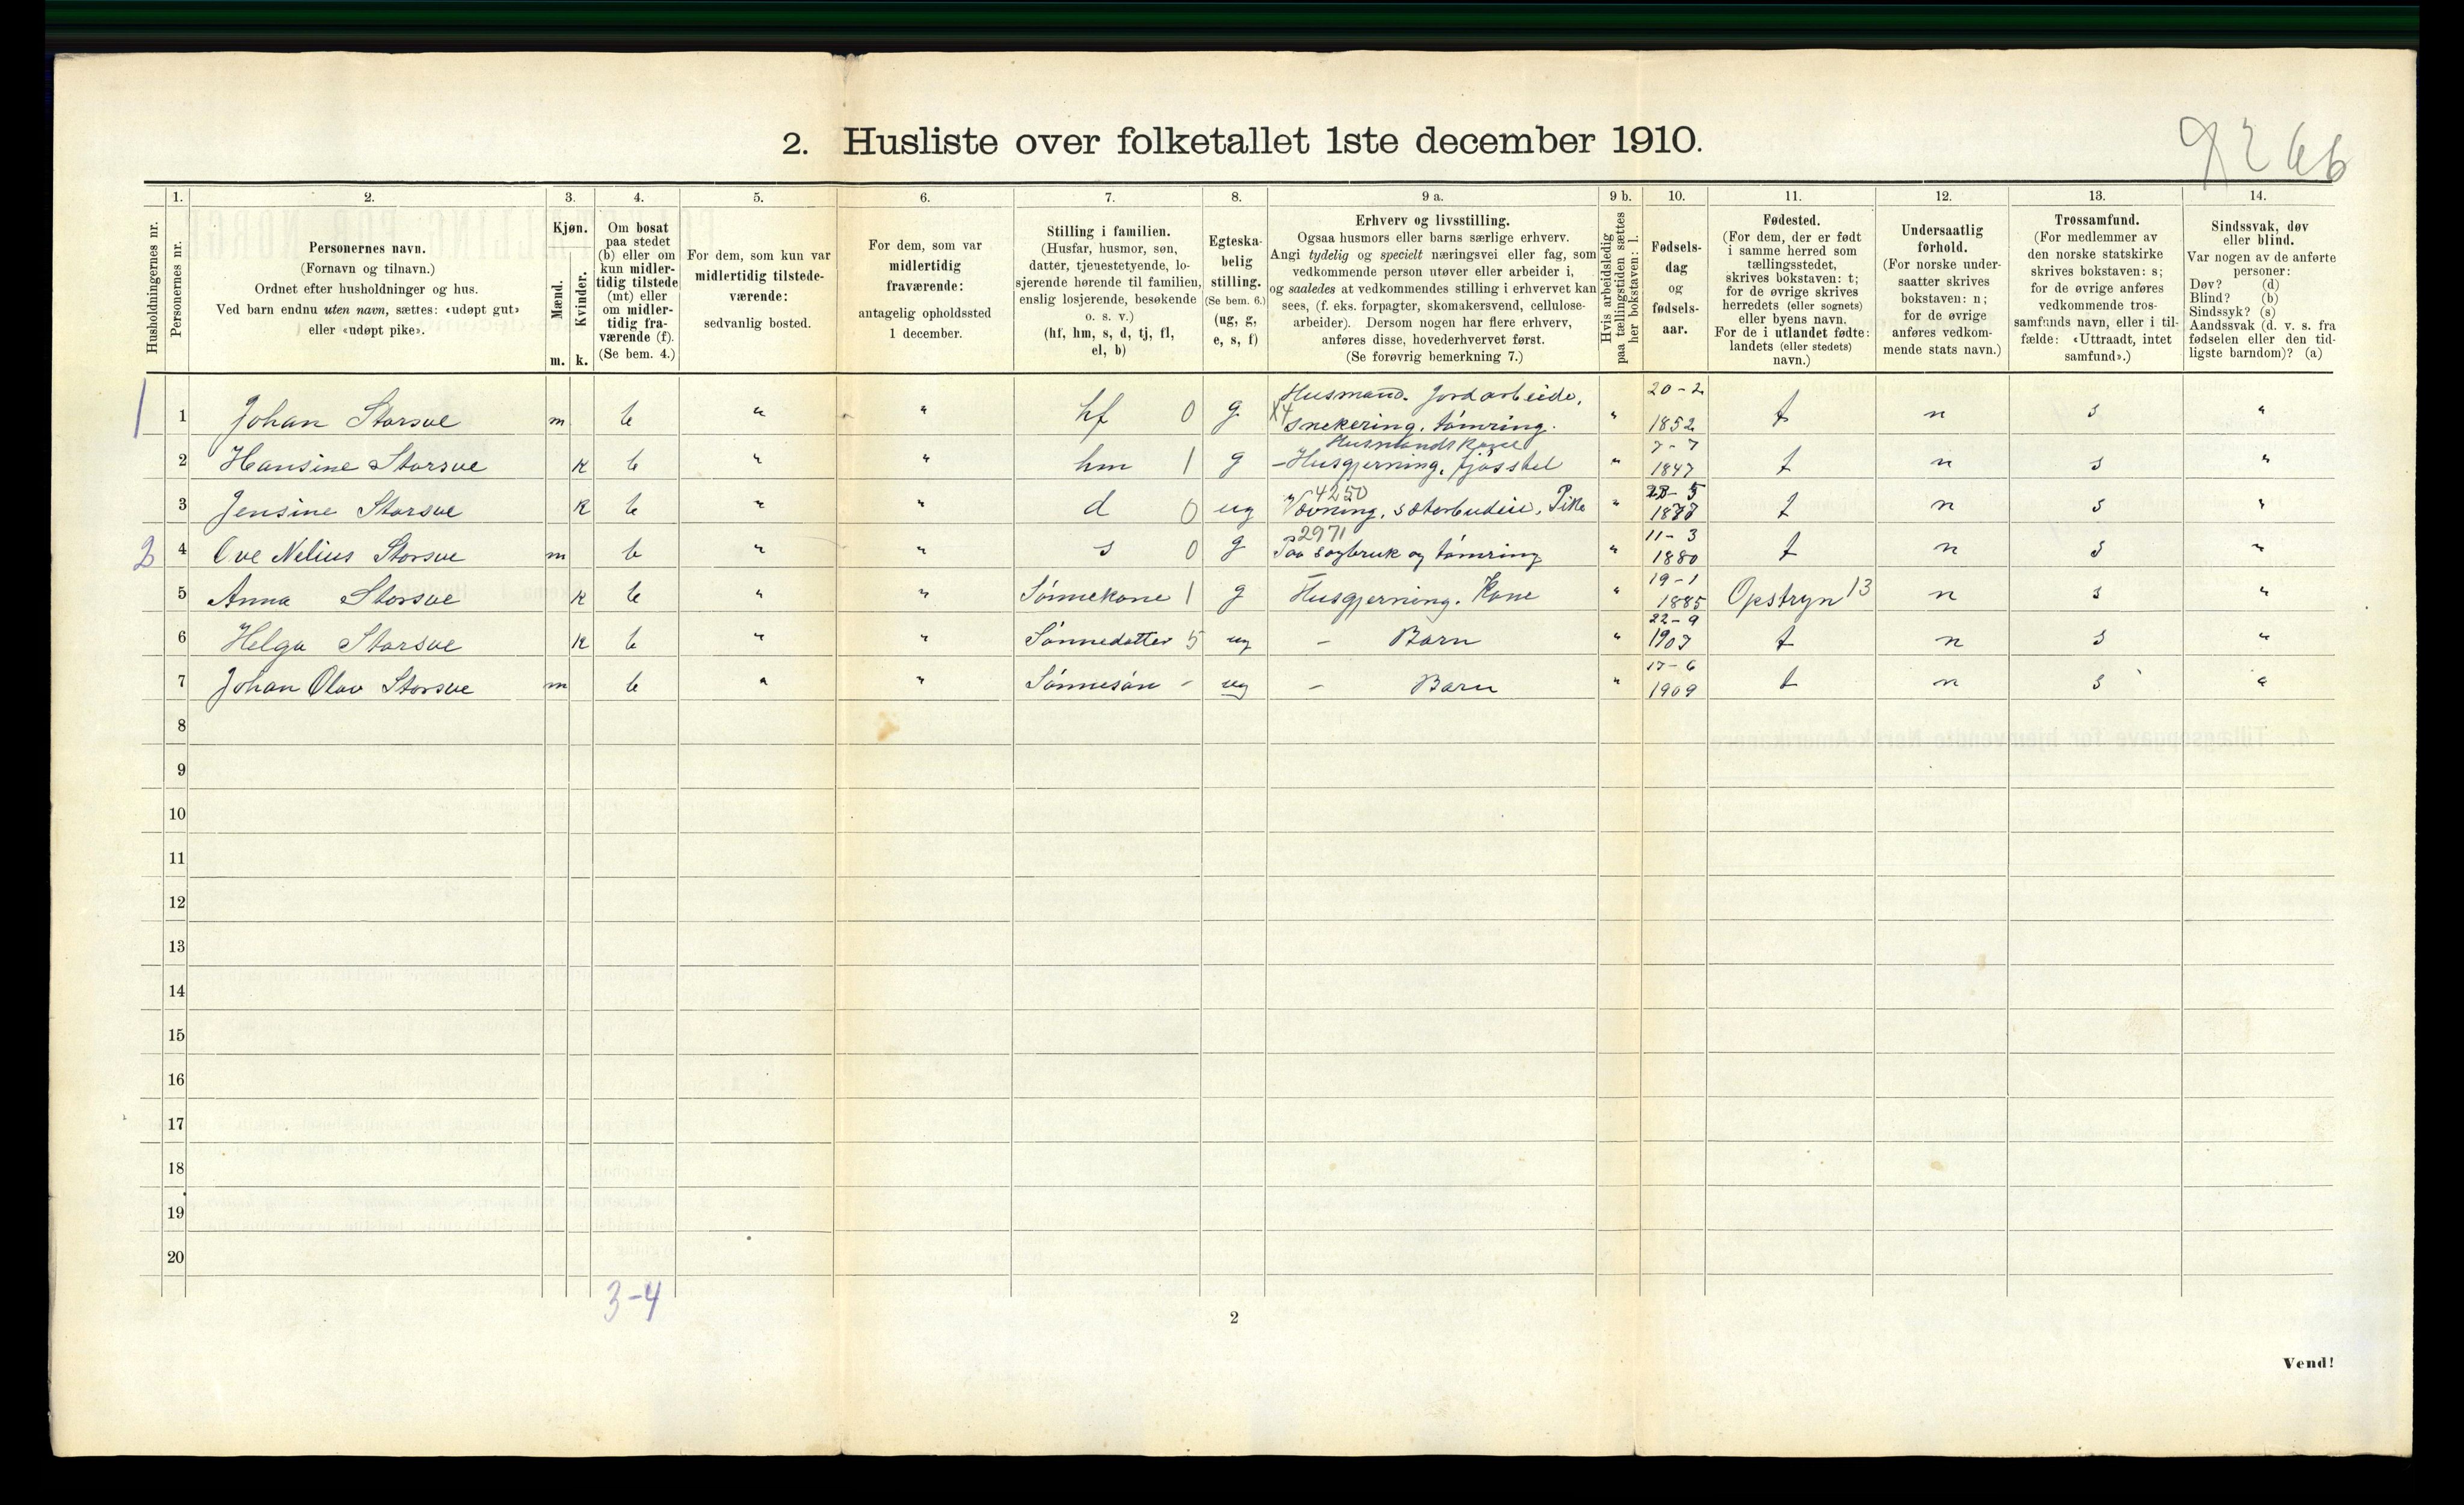 2. Husliste over folketallet 1ste december 1910.
9266
1. 2. 3. 4. 5. 6. 7. 8. 9 a. 9 b. 10. 11. 12. 13. 14.
Husholdningernes nr.
Personernes nr.
Personernes navn.
(Fornavn og tilnavn.)
Ordnet efter husholdninger og hus.
Ved barn endnu uten navn, sættes: «udøpt gut»
eller «udøpt pike».
Kjøn.
Mænd.
Kvinder.
m. k.
Om bosat
paa stedet
(b) eller om
kun midler-
tidig tilstede
(mt) eller
om midler-
tidig fra-
værende (f).
(Se bem. 4.)
For dem, som kun var
midlertidig tilstede-
værende:
sedvanlig bosted.
For dem, som var
midlertidig
fraværende:
antagelig opholdssted
1 december.
Stilling i familien.
(Husfar, husmor, søn,
datter, tjenestetyende, lo-
sjerende hørende til familien,
enslig losjerende, besøkende
o. s. v.)
(hf, hm, s, d, tj, fl,
el, b)
Egteska-
belig
stilling.
(Se bem. 6.)
(ug, g,
e, s, f)
Erhverv og livsstilling.
Ogsaa husmors eller barns særlige erhverv.
Angi tydelig og specielt næringsvei eller fag, som
vedkommende person utøver eller arbeider i,
og saaledes at vedkommendes stilling i erhvervet kan
sees, (f. eks. forpagter, skomakersvend, cellulose-
arbeider). Dersom nogen har flere erhverv,
anføres disse, hovederhvervet først.
(Se forøvrig bemerkning 7.)
Hvis arbeidsledig
paa tællingstiden sættes
her bokstaven: l.
Fødsels-
dag
og
fødsels-
aar.
Fødested.
(For dem, der er født
i samme herred som
tællingsstedet,
skrives bokstaven: t;
for de øvrige skrives
herredets (eller sognets)
eller byens navn.
For de i utlandet fødte:
landets (eller stedets)
navn.)
Undersaatlig
forhold.
(For norske under-
saatter skrives
bokstaven: n;
for de øvrige
anføres vedkom-
mende stats navn.)
Trossamfund.
(For medlemmer av
den norske statskirke
skrives bokstaven: s;
for de øvrige anføres
vedkommende tros-
samfunds navn, eller i til-
fælde: «Uttraadt, intet
samfund».)
Sindssvak, døv
eller blind.
Var nogen av de anførte
personer:
Døv? (d)
Blind? (b)
Sindssyk? (s)
Aandssvak (d. v. s. fra
fødselen eller den tid-
ligste barndom)? (a)
Husmand. Jordarbeide, 20-2
1 1 Johan Storsve m b " " hf 0 g X4 snekering, tømring. " 1852 t n s "
Husmandskone 7-7
2 Hansine Storsve k b " " hm 1 g -Husgjerning, fjøsstel " 1847 t n s "
4250 5
3 Jensine Storsve k b " " d 0 ug Vævning, sæterbudeie, Pike " t n s "
2971 11-3
2 4 Ove Nelius Storsve m b " " s 0 g Paa sagbruk og tømring " 1880 t n s "
19-1
5 Anna Storsve k b " " Sønnekone 1 g Husgjerning. Kone " 1885 Opstryn 13 n s "
22-9
6 Helga Storsve k b " " Sønnedatter 5 ug - Barn " 1907 t n s "
17-6
7 Johan Olav Storsve m b " " Sønnesøn - ug - Barn " 1909 t n s "
8
9
10
11
12
13
14
15
16
17
18
19
20
3-4
2
Vend!